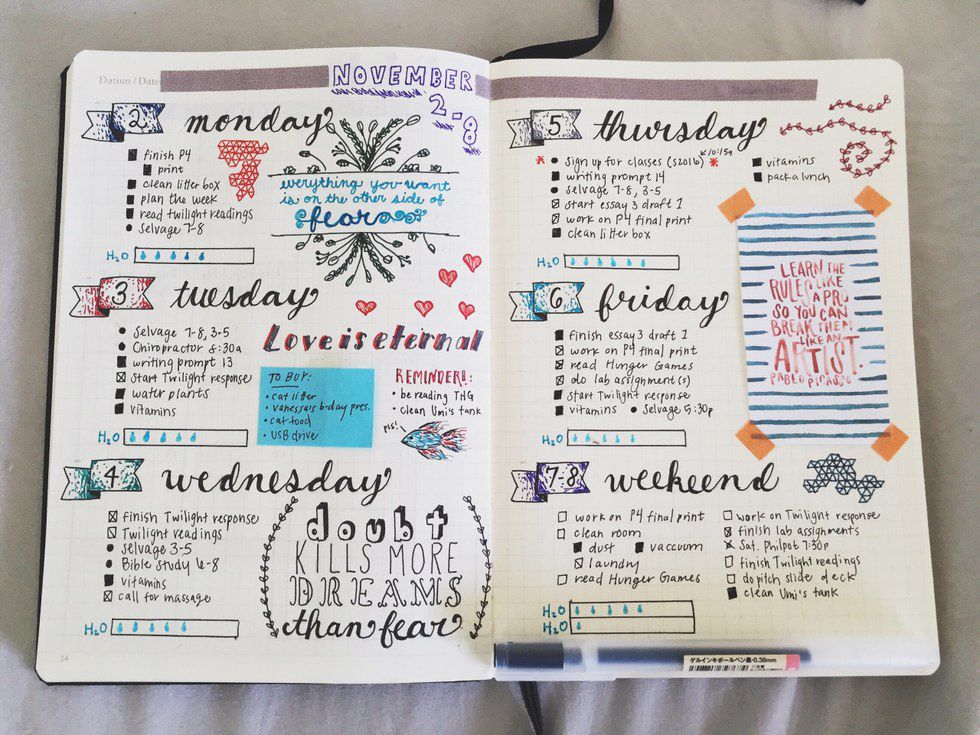 Datum / Date
NOVEMBER
2-8
2 monday
finish P4
print
clean litter box
plan the week
read twilight readings
Selvage 7-8
H2O
everything you want
is on the other side of
fear
3 tuesday
Selvage 7-8, 3-5
Chiropractor 8:30a
writing prompt 13
Start Twilight response
water plants
vitamins
H2O
Love is eternal
TO BUY:
• cat litter
• vanessa's b-day pres.
• cat food
• USB drive
REMINDER!:
• be reading THG
• clean Umi's tank
pls!
4 wednesday
finish Twilight response
Twilight readings
Selvage 3-5
Bible Study 6-8
vitamins
call for massage
H2O
doubt
KILLS MORE
DREAMS
than fear
24
5 thursday
10:15a
* Sign up for classes (S2016) *
writing prompt 14
Selvage 7-8, 3-5
start essay 3 draft 1
work on P4 final print
clean litter box
vitamins
pack a lunch
H2O
6 friday
finish essay 3 draft 1
work on P4 final print
read Hunger Games
do lab assignment(s)
start Twilight response
vitamins • Selvage 5:30p
H2O
LEARN THE
RULES LIKE
A PRO
SO YOU CAN
BREAK THEM
LIKE AN
ARTIST.
PABLO PICASSO
7-8 weekend
work on P4 final print
clean room
dust vaccuum
laundry
read Hunger Games
work on Twilight response
finish lab assignments
Sat. Philpot 7:30p
finish Twilight readings
do pitch slide deck
clean Umi's tank
H2O
H2O
ゲルインキボールペン黒・0.38mm